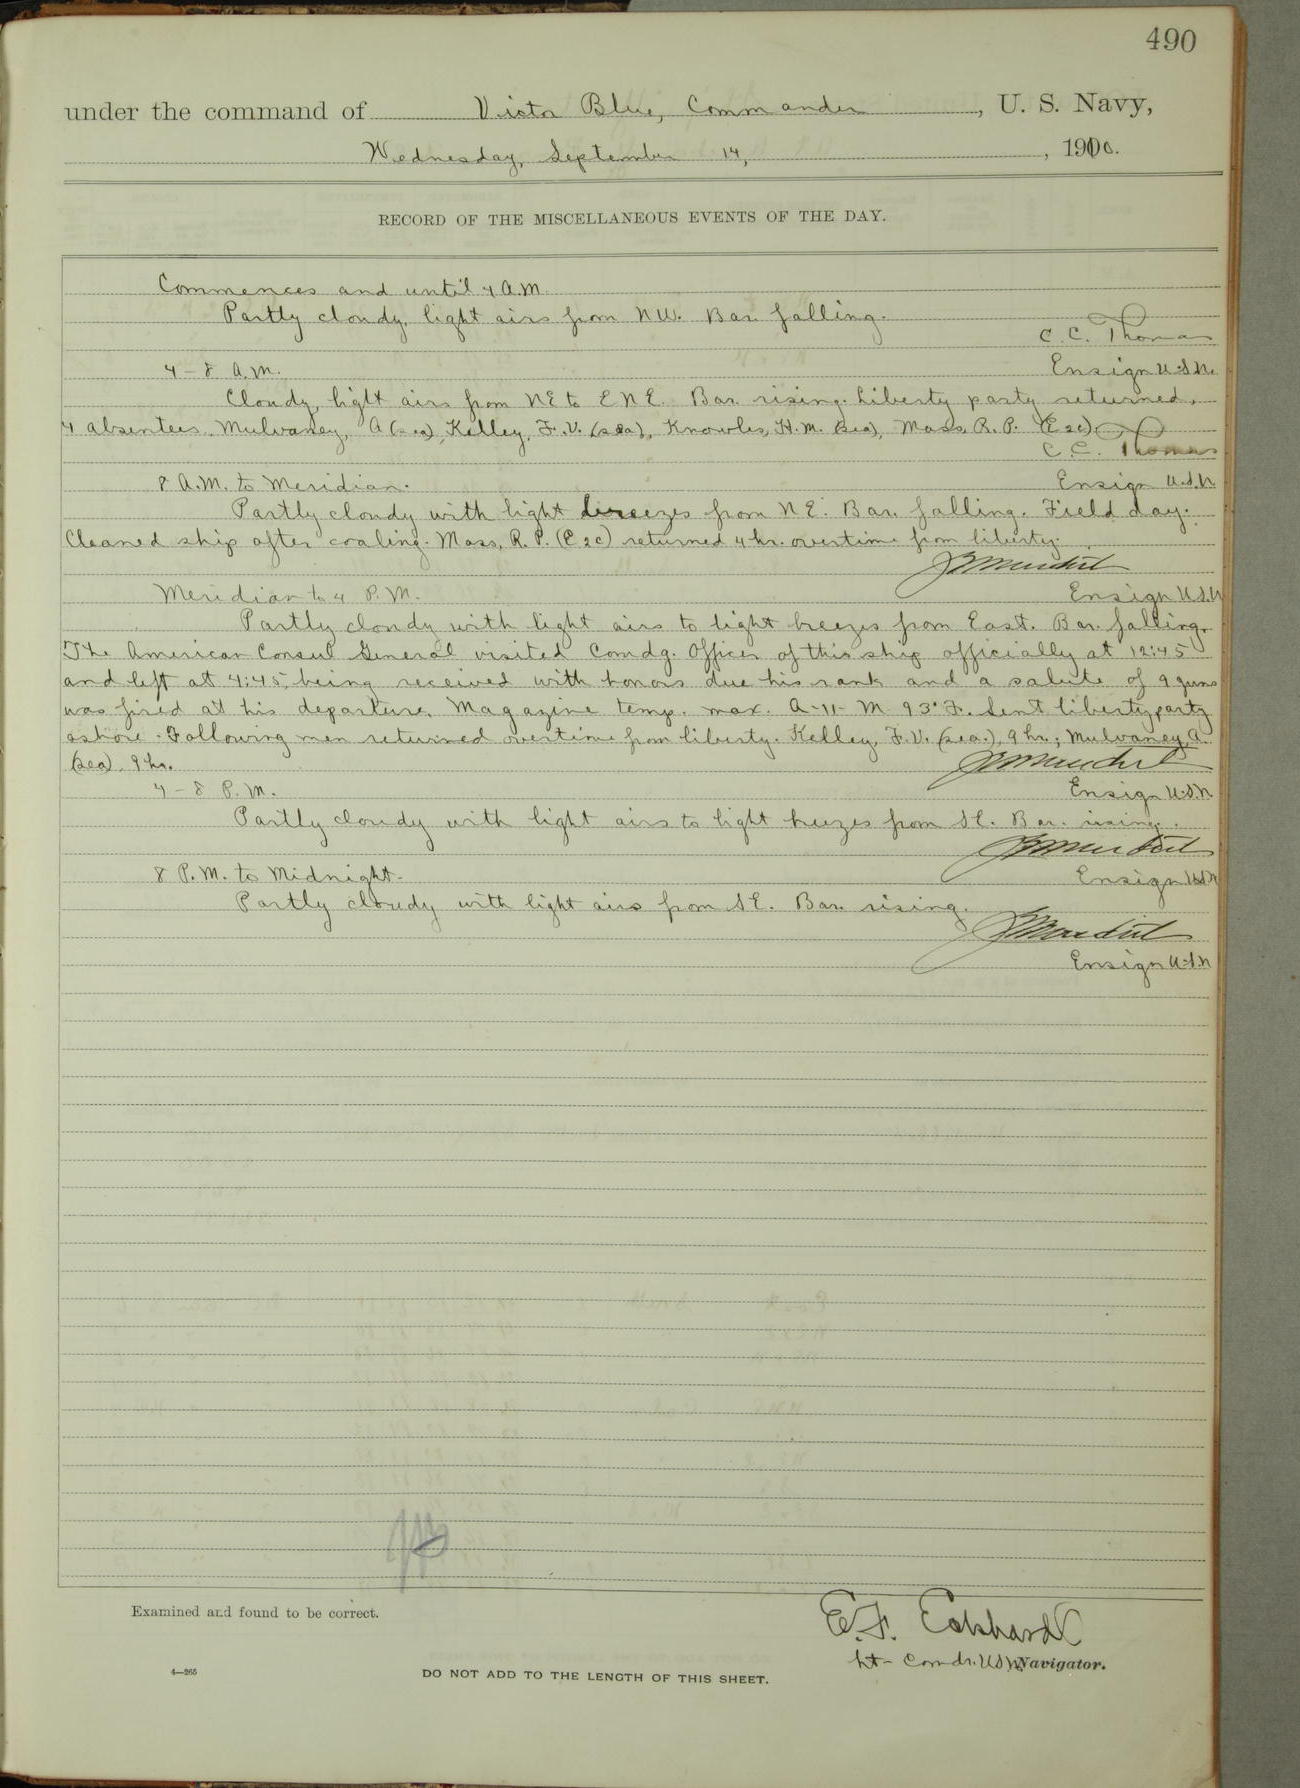 490
under the command of Victor Blue, Commander, U. S. Navy,
Wednesday, September 14, , 1910.
RECORD OF THE MISCELLANEOUS EVENTS OF THE DAY.
Commences and until 4 A.M.
Partly cloudy, light airs from NW. Bar. falling.
C. C. Thomas
4 - 8 A.M.
Ensign U.S.N.
Cloudy, light airs from NE to ENE. Bar. rising. Liberty party returned,
4 absentees. Mulvaney, A (sea), Kelley, F.V. (sea), Knowles, H.M. (sea), Mass, R.P. (E 2c).
C. C. Thomas
8 A.M. to Meridian.
Ensign U.S.N.
Partly cloudy with light breezes from NE. Bar. falling. Field day.
Cleaned ship after coaling. Mass, R.P. (E 2c) returned 4 hr. overtime from liberty.
Meridian to 4 P.M.
Ensign U.S.N
Partly cloudy with light airs to light breezes from East. Bar. falling.
The American Consul General visited Comdg. Officer of this ship officially at 12:45
and left at 4:45, being received with honors due his rank and a salute of 9 guns
was fired at his departure. Magazine temp. max. A-11-M 93° F. Sent liberty party
ashore. Following men returned overtime from liberty. Kelley, F.V. (sea.), 9 hr.; Mulvaney, A.
(sea), 9 hr.
4 - 8 P.M.
Ensign U.S.N.
Partly cloudy with light airs to light breezes from SE. Bar. rising.
8 P.M. to Midnight.
Ensign U.S.N
Partly cloudy with light airs from SE. Bar. rising.
Ensign U.S.N
Examined and found to be correct.
E. F. Eckhardt
Lt - Comdr. U.S.N, Navigator.
4—265
DO NOT ADD TO THE LENGTH OF THIS SHEET.